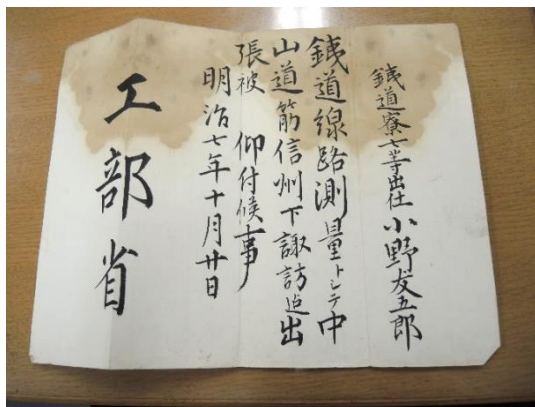 鉄道寮七等出仕 小野友五郎
鉄道線路測量トシテ中
山道筋信州下諏訪迠出
張被 仰付候事
明治七年十月廿日
工部省